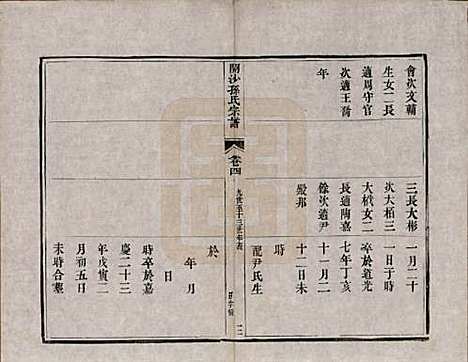 會次文輔
生女二長
適周守官
次適王喬
年
三長大彬
次大栢三
大栻女二
長適陶嘉
條次適尹
殿邦
一月二十
一日子時
卒於道光
七年丁亥
十一月二
十二日未
時
配尹氏生
開沙孫氏宗譜
卷四
九世至十三世年表
於
年月
日
時卒於嘉
慶二十三
年戊寅二
月初五日
未時合塟